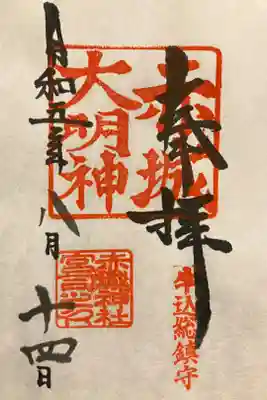 奉拝
赤城
大明神
牛込総鎮守
赤城神社
宮司之印
令和五年八月十四日